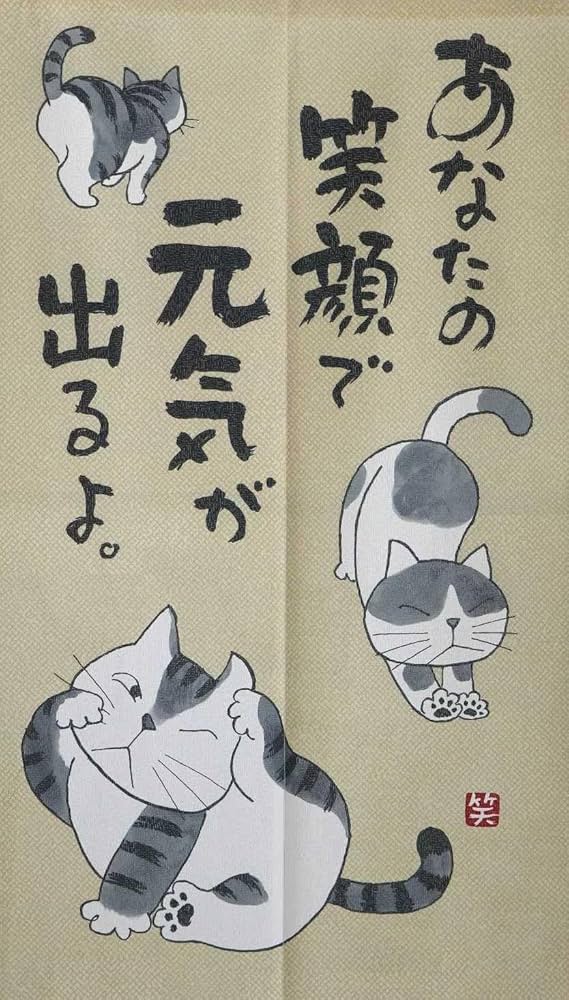 あなたの
笑顔で
元気が
出るよ。
笑